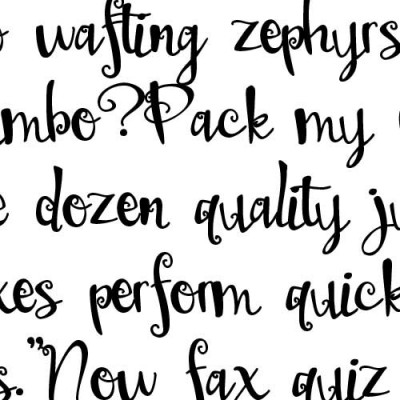 o wafting zephyrs
umbo?Pack my
e dozen quality ju
xes perform quick
s."Now fax quiz